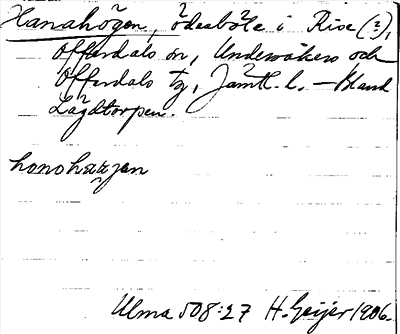 Hanahögen, ödesböle i Rise (?),
Offerdals sn, Undersåkers och
Offerdals tg, Jämtl. l. — Bland
Lågdtorpen.
honohæzen
Ulma 508:27 H. Geijer 1906.